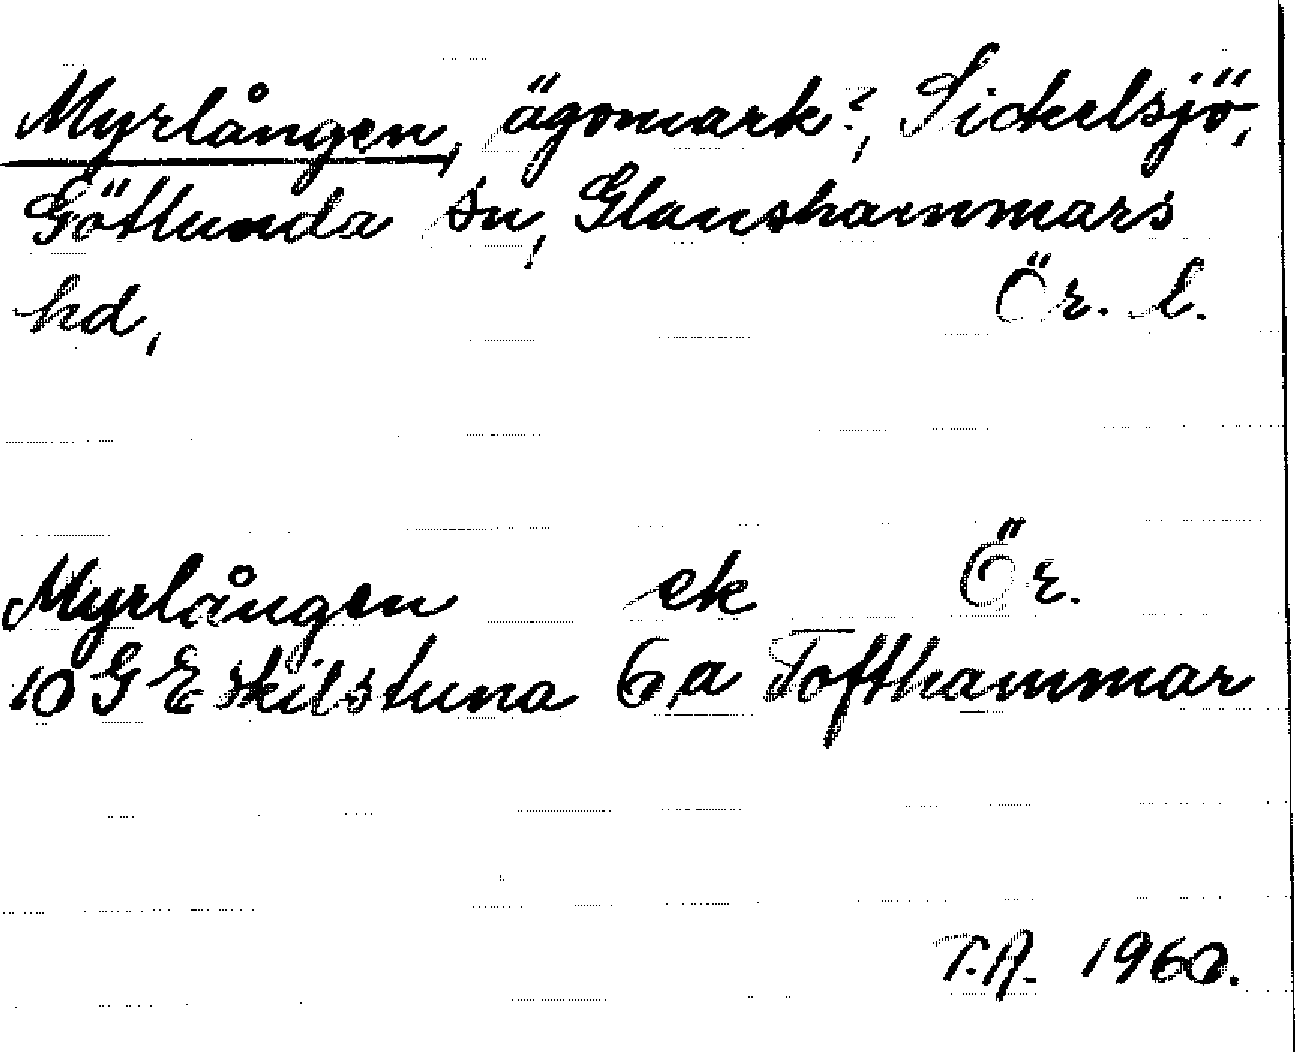 Myrlången, ägomark?, Sickelsjö,
Götlunda sn, Glanshammars
hd, Ör. l.
Myrlången ek Ör.
10 G Eskilstuna 6 a Tofthammar
T.R. 1960.